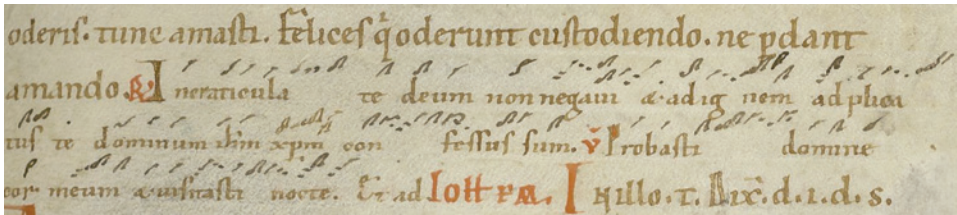 oderis. tunc amasti. felices q oderunt custodiendo. ne pdant
amando. R In craticula te deum non negavi & ad ignem ad plica
tus te dominum ihm xpm con fessus sum. V Probasti domine
cor meum & visitasti nocte. Et ad Iohem. In illo. t. Dix. d. i. d. s.